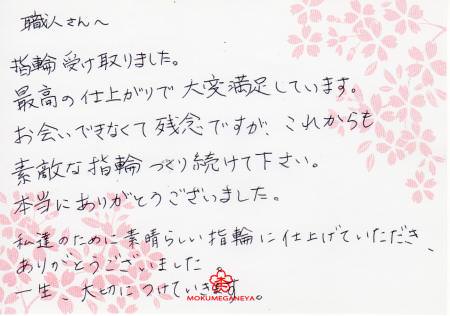 職人さんへ
指輪受け取りました。
最高の仕上がりで大変満足しています。
お会いできなくて残念ですが、これからも
素敵な指輪つくり続けて下さい。
本当にありがとうございました。
私達のために素晴らしい指輪に仕上げていただき、
ありがとうございました
一生、大切につけていきます。
MOKUMEGANEYA